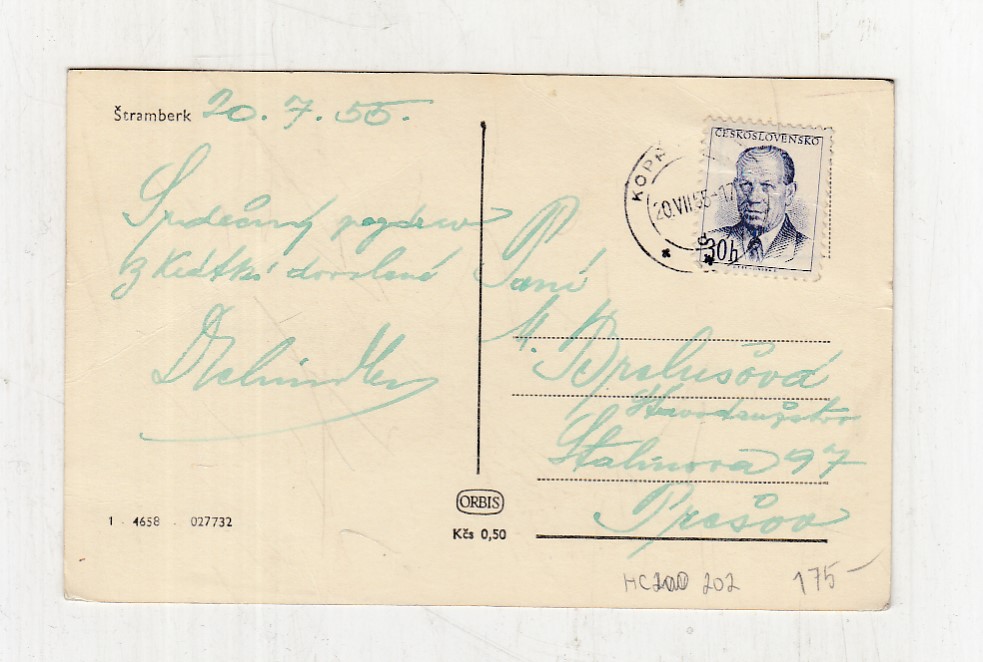 Štramberk 20. 7. 55.
Srdečný pozdrav
z krátké dovolené
ČESKOSLOVENSKO
30h
KOPŘ
20.VII.55-17
Paní
M. Brelušová
Stalinova 97
Prešov
ORBIS
Kčs 0,50
1 4658 027732
202
175-